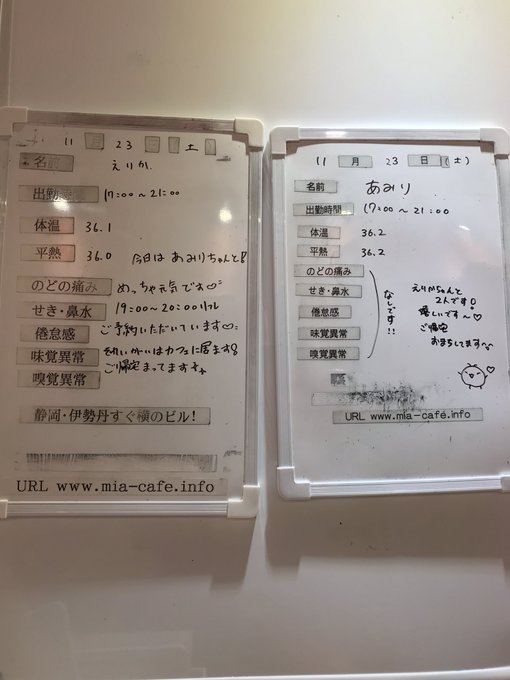 11 月 23 日 土
名前 えりか
出勤時間 17:00〜21:00
体温 36.1
平熱 36.0 今日はあみりちゃんと!
のどの痛み めっちゃ元気です♡
せき・鼻水 19:00〜20:00リフレ
倦怠感 ご予約いただいています♡
味覚異常 それいがいはカフェに居ます!
嗅覚異常 ご帰宅まってます
静岡・伊勢丹すぐ横のビル!
URL www.mia-cafe.info
11 月 23 日 (土)
名前 あみり
出勤時間 17:00〜21:00
体温 36.2
平熱 36.2
のどの痛み
せき・鼻水
倦怠感
味覚異常
嗅覚異常
なしです!!
えりかちゃんと
2人です!
嬉しいです〜♡
ご帰宅
おまちしてます
URL www.mia-café.info